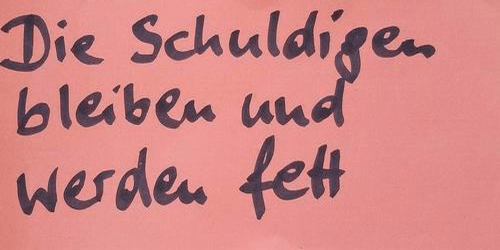 Die Schuldigen
bleiben und
werden fett